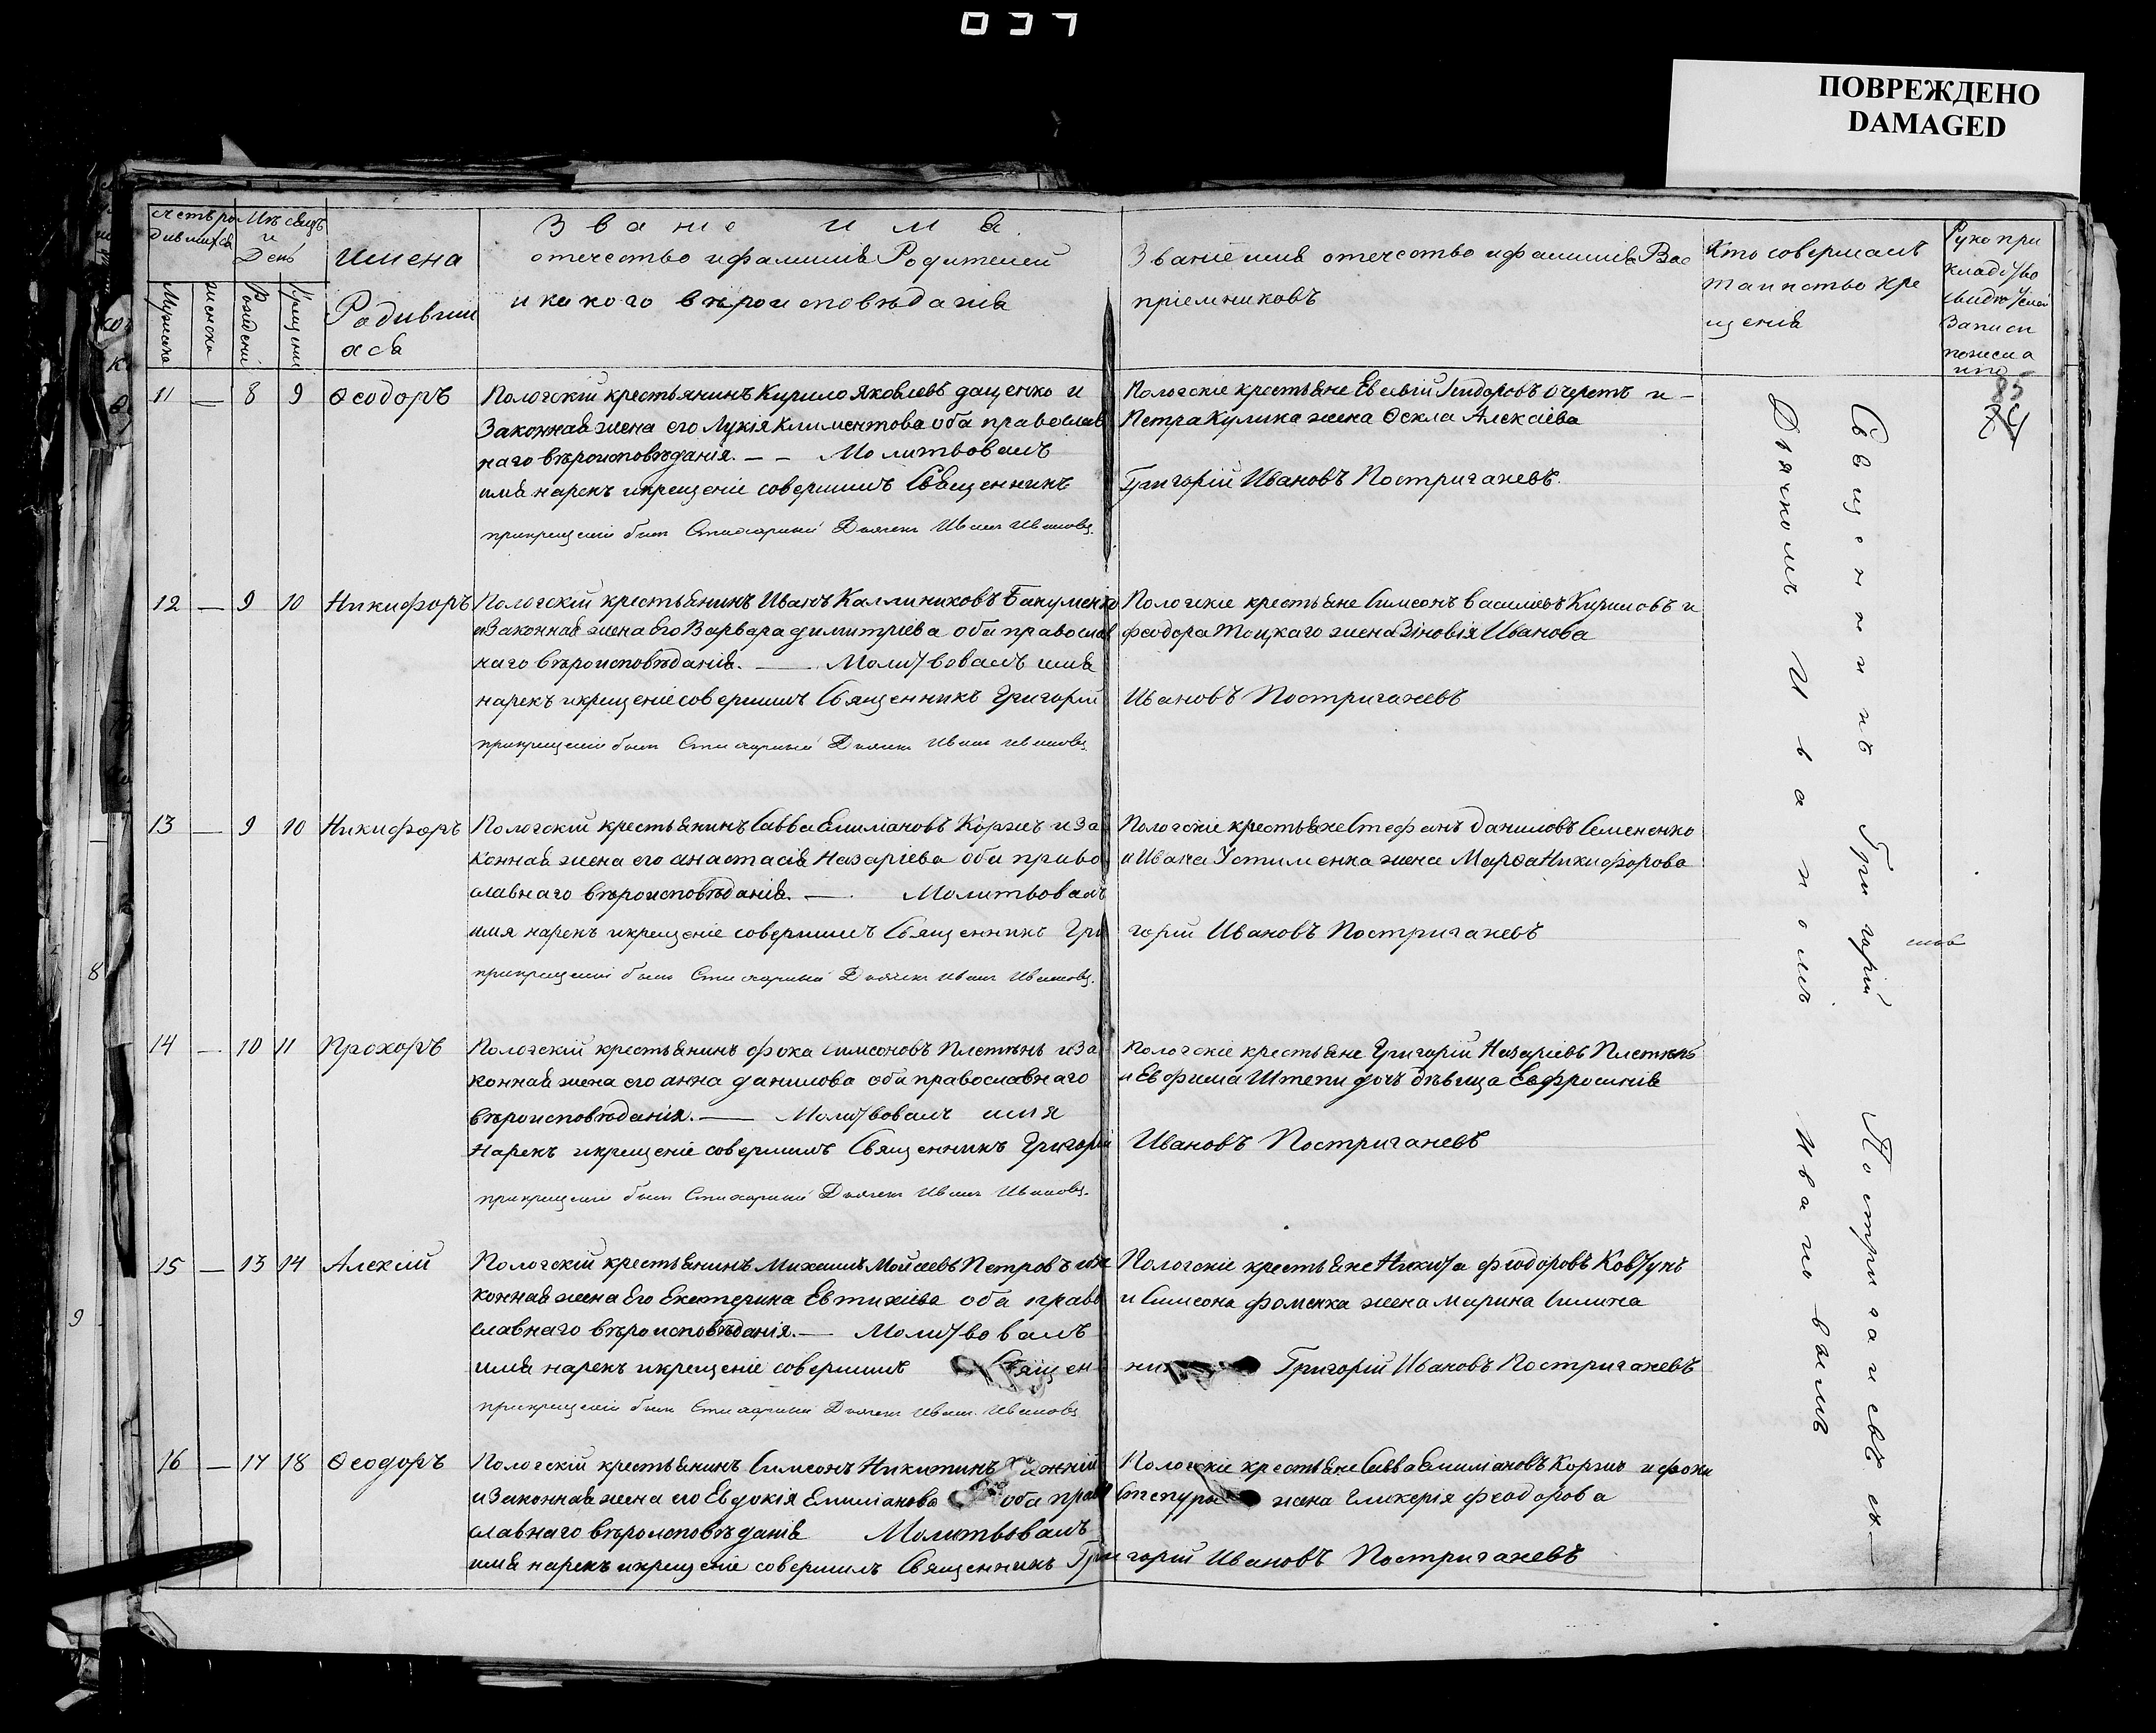 037
ПОВРЕЖДЕНО
DAMAGED
Счетъ ро
дившихся
Мужска
женска
Мѣсяцъ
и
День
Рождені
Крещенія
Имена
Родивши
хся
Званіе имя
отечество и фамилія Родителей
и какого вѣроисповѣданія
Званіе имя отечество и фамилія Вос
пріемниковъ
Кто совершалъ
таинство кре
щенія
Руко при
кладство
свидѣтелей
Записи
по жела
нію
85
11 — 8 9 Ѳеодоръ
Пологскій крестьянинъ Кирило Яковлевъ Даценко и
законная жена его Лукія Климентова оба православ
наго вѣроисповѣданія. — — Молитвовалъ
имя нарекъ и крещеніе совершилъ Священникъ
при крещеніи былъ Стихарный Дьячекъ Иванъ Ивановъ.
Пологскіе крестьяне Евсевій Исидоровъ Очеретъ и —
Петра Кулика жена Ѳекла Алексіева
Григорій Ивановъ Постриганевъ.
12 — 9 10 Никифоръ
Пологскій крестьянинъ Иванъ Каллиниковъ Бакуменко
и Законная жена Его Варвара Димитріева оба православ
наго вѣроисповѣданія. — Молитвовалъ имя
нарекъ и крещеніе совершилъ Священникъ Григорій
при крещеніи былъ Стихарный Дьячекъ Иванъ Ивановъ.
Пологскіе крестьяне Симеонъ Василіевъ Кириловъ и
Феодора Тоцкаго жена Зіновія Иванова
Ивановъ Постриганевъ
13 — 9 10 Никифоръ
Пологскій крестьянинъ Савва Емиліановъ Коржъ и За
конная жена его Анастасія Назаріева оба право
славнаго вѣроисповѣданія. — Молитвовалъ
имя нарекъ и крещеніе совершилъ Священникъ Гри
при крещеніи былъ Стихарный Дьячекъ Иванъ Ивановъ.
Пологскіе крестьяне Стефанъ Даниловъ Семененко
и Ивана Устименка жена Марѳа Никифорова
горій Ивановъ Постриганевъ
14 — 10 11 Прохоръ
Пологскій крестьянинъ Фока Симеоновъ Плетѣнь и За
конная жена его Анна Данилова оба православнаго
вѣроисповѣданія. — Молитвовалъ имя
Нарекъ и крещеніе совершилъ Священникъ Григорій
при крещеніи былъ Стихарный Дьячекъ Иванъ Ивановъ.
Пологскіе крестьяне Григорій Назаріевъ Плетѣнь
и Евфима Штепи дочь дѣвица Евфросинія
Ивановъ Постриганевъ
15 — 13 14 Алексій
Пологскій крестьянинъ Михаилъ Мойсеевъ Петровъ и За
конная жена Его Екатерина Евтихіева оба право
славнаго вѣроисповѣданія. — Молитвовалъ
имя нарекъ и крещеніе совершилъ Священ
при крещеніи былъ Стихарный Дьячекъ Иванъ Ивановъ
Пологскіе крестьяне Никита Феодоровъ Ковтунъ
и Симеона Фоменка жена Марина Силина
никъ Григорій Ивановъ Постриганевъ
16 — 17 18 Ѳеодоръ
Пологскій крестьянинъ Симеонъ Никитинъ
и Законная жена его Евдокія Емиліанова оба право
славнаго вѣроисповѣданія Молитвовалъ
имя нарекъ и крещеніе совершилъ Священникъ Гри
Пологскіе крестьяне Савва Емиліановъ Коржъ и Фоки
жена Гликерія Феодорова
горій Ивановъ Постриганевъ
Священникъ Григорій Постриганевъ съ —
Дьячкомъ Иваномъ Ивановымъ
8
9